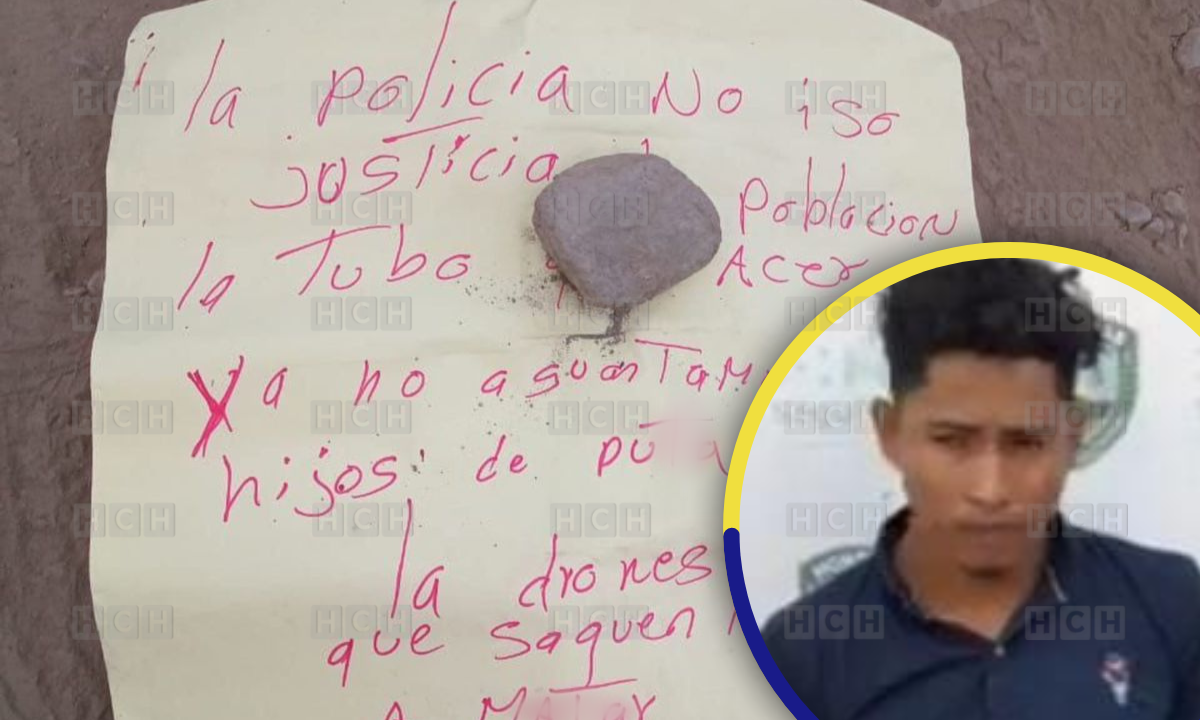 ¡ la policia No iso
josticia
Poblacion
la Tubo Acer
Ya no aguantam
hijos de pu
la drones
que saquen
A
HCH